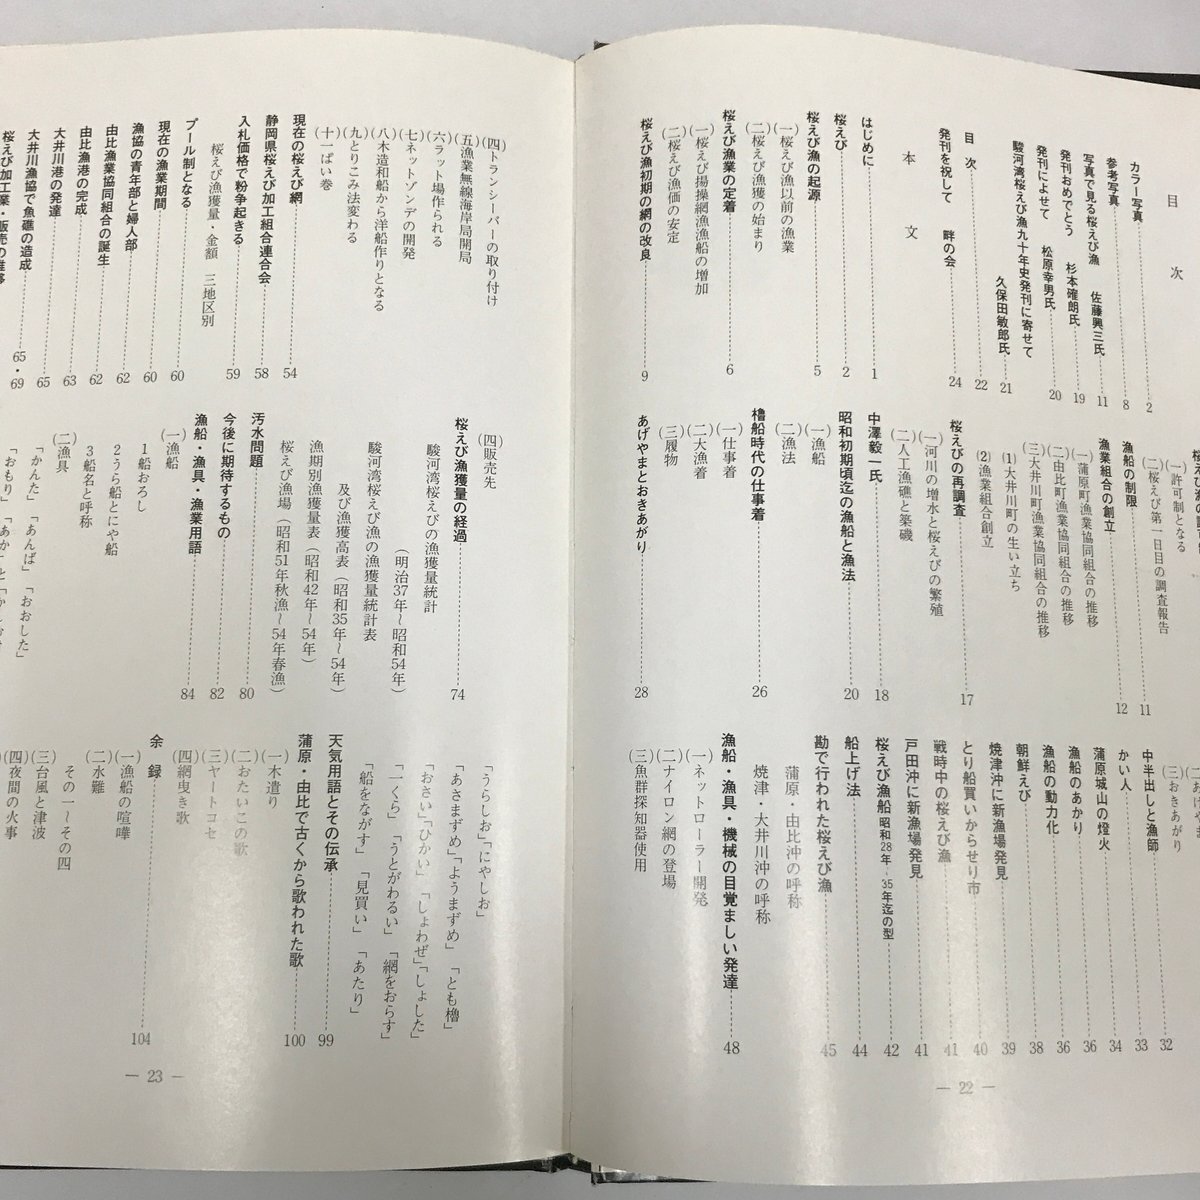 目次
カラー写真 2
参考写真 8
写真で見る桜えび漁 佐藤興三氏 11
発刊おめでとう 杉本確朗氏 19
発刊によせて 松原幸男氏 20
駿河湾桜えび漁九十年史発刊に寄せて
久保田敏郎氏 21
目次 22
発刊を祝して 畔の会 24
本文
はじめに 1
桜えび 2
桜えび漁の起源 5
(一)桜えび漁以前の漁業
(二)桜えび漁獲の始まり
桜えび漁業の定着 6
(一)桜えび揚操網漁船の増加
(二)桜えび漁価の安定
桜えび漁初期の網の改良 9
(一)許可制となる
(二)桜えび第一日目の調査報告
漁船の制限 11
漁業組合の創立 12
(一)蒲原町漁業協同組合の推移
(二)由比町漁業協同組合の推移
(三)大井川町漁業協同組合の推移
(1)大井川町の生い立ち
(2)漁業組合創立
桜えびの再調査 17
(一)河川の増水と桜えびの繁殖
(二)人工漁礁と築磯
中澤毅一氏 18
昭和初期頃迄の漁船と漁法 20
(一)漁船
(二)漁法
櫓船時代の仕事着 26
(一)仕事着
(二)大漁着
(三)履物
あげやまとおきあがり 28
(三)おきあがり
中半出しと漁師 32
かい人 33
蒲原城山の燈火 34
漁船のあかり 36
漁船の動力化 36
朝鮮えび 38
焼津沖に新漁場発見 39
とり船買いからせり市 40
戦時中の桜えび漁 41
戸田沖に新漁場発見 41
桜えび漁船 昭和28年~35年迄の型 42
船上げ法 44
勘で行われた桜えび漁 45
蒲原・由比沖の呼称
焼津・大井川沖の呼称
漁船・漁具・機械の目覚ましい発達 48
(一)ネットローラー開発
(二)ナイロン網の登場
(三)魚群探知器使用
— 22 —
(四)トランシーバーの取り付け
(五)漁業無線海岸局開局
(六)ラット場作られる
(七)ネットゾンデの開発
(八)木造和船から洋船作りとなる
(九)とりこみ法変わる
(十)一ぱい巻
現在の桜えび網 54
静岡県桜えび加工組合連合会 58
入札価格で粉争起きる 59
桜えび漁獲量・金額 三地区別
プール制となる 60
現在の漁業期間 60
漁協の青年部と婦人部 62
由比漁業協同組合の誕生 62
由比漁港の完成 63
大井川港の発達 65
大井川漁協で魚礁の造成 65・69
桜えび加工業・販売の推移
(四)販売先
桜えび漁獲量の経過 74
駿河湾桜えびの漁獲量統計
(明治37年~昭和54年)
駿河湾桜えび漁の漁獲量統計表
及び漁獲高表(昭和35年~54年)
漁期別漁獲量表(昭和42年~54年)
桜えび漁場(昭和51年秋漁~54年春漁)
汚水問題 80
今後に期待するもの 82
漁船・漁具・漁業用語 84
(一)漁船
1船おろし
2うら船とにや船
3船名と呼称
(二)漁具
「かんた」「あんば」「おおした」
「うらしお」「にやしお」
「あさまずめ」「ようまずめ」「とも櫓」
「おさい」「ひかい」「しょわぜ」「しょした」
「一くら」「うとがわるい」「網をおらす」
「船をながす」「見買い」「あたり」
天気用語とその伝承 99
蒲原・由比で古くから歌われた歌 100
(一)木遣り
(二)おたいこの歌
(三)ヤートコセ
(四)網曳き歌
余録 104
(一)漁船の喧嘩
(二)水難
その一~その四
(三)台風と津波
(四)夜間の火事
— 23 —